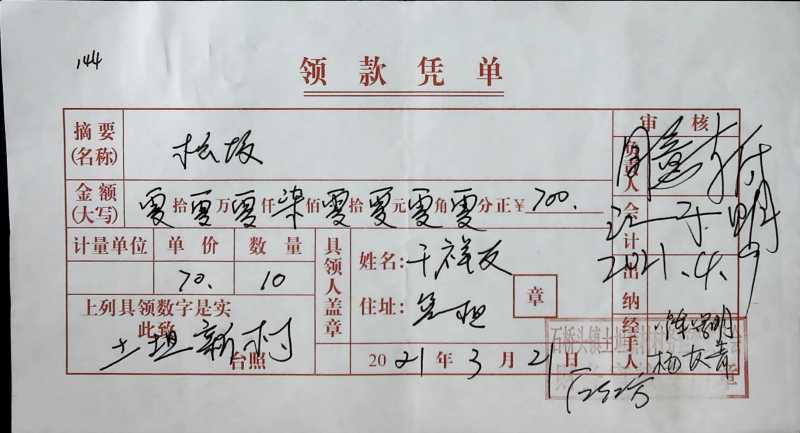 144
领款凭单
摘要(名称) 松板
审核
金额(大写) 零拾零万零仟柒佰零拾零元零角零分正¥ 700.
负责人 同意支付
会计
计量单位 单价 数量
70. 10
具领人盖章
姓名: 干祥友
住址:
章
2021.4.9
出纳
上列具领数字是实
此致
土坦新村
台照
2021年3月21日
经手人
石桥头镇土坦